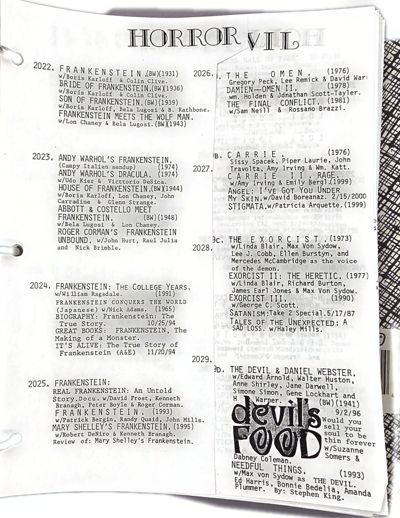 HORROR VII
2022. FRANKENSTEIN.(BW)(1931)
w/Boris Karloff & Colin Clive.
BRIDE OF FRANKENSTEIN.(BW)(1936)
w/Boris Karloff & Colin Clive.
SON OF FRANKENSTEIN.(BW)(1939)
w/Boris Karloff, Bela Lugosi & B. Rathbone.
FRANKENSTEIN MEETS THE WOLF MAN.
w/Lon Chaney & Bela Lugosi.(BW)(1943)
2023. ANDY WARHOL'S FRANKENSTEIN.
(Campy Italien sendup) (1974)
ANDY WARHOL'S DRACULA. (1974)
w/Udo Kier & Victorio DeSica.
HOUSE OF FRANKENSTEIN.(BW)(1944)
w/Boris Karloff, Lon Chaney, John
Carradine & Glenn Strange.
ABBOTT & COSTELLO MEET
FRANKENSTEIN. (BW)(1948)
w/Bela Lugosi & Lon Chaney.
ROGER CORMAN'S FRANKENSTEIN
UNBOUND. w/John Hurt, Raul Julia
and Nick Brimble.
2024. FRANKENSTEIN: The College Years.
w/William Ragsdale. (1991)
FRANKENSTEIN CONQUERS THE WORLD
(Japanese) w/Nick Adams. (1965)
BIOGRAPHY: Frankenstein: The
True Story. 10/25/94
GREAT BOOKS: FRANKENSTEIN, The
Making of a Monster.
IT'S ALIVE: The True Story of
Frankenstein (A&E) 11/20/94
2025. FRANKENSTEIN:
REAL FRANKENSTEIN: An Untold
Story.Docu. w/David Prost, Kenneth
Branagh, Peter Boyle & Roger Corman.
FRANKENSTEIN. (1993)
w/Patrick Bergin, Randy Quaid, John Mills.
MARY SHELLEY'S FRANKENSTEIN.(1995)
w/Robert DeNiro & Kenneth Branagh.
Review of: Mary Shelley's Frankenstein.
2026. THE OMEN. (1976)
Gregory Peck, Lee Remick & David War
DAMIEN—OMEN II. (1978)
wm. Holden & Jonathan Scott-Taylor.
THE FINAL CONFLICT. (1981)
w/Sam Neill & Rossano Brazzi.
2027. B. CARRIE. (1976)
Sissy, Spacek, Piper Laurie, John
Travolta, Amy Irving & Wm. Katt.
CARRIE II, RAGE.
w/Amy Irving & Emily Bergl.(1999)
ANGEL: I'VE GOT YOU UNDER
MY SKIN.w/David Boreanaz. 2/15/2000
STIGMATA.w/Patricia Arquette.(1999)
2028. c. THE EXORCIST.(1973)
w/Linda Blair, Max Von Sydow,
Lee J. Cobb, Ellen Burstyn, and
Mercedes McCambridge as the voice
of the demon.
EXORCIST II: THE HERETIC. (1977)
w/Linda Blair, Richard Burton,
James Earl Jones & Max Von Sydow.
EXORCIST III. (1990)
w/George C. Scott.
SATANISM:Take 2 Special.5/17/87
TALES OF THE UNEXPECTED: A
SAD LOSS. w/Haley Mills.
2029. D. THE DEVIL & DANIEL WEBSTER.
w/Edward Arnold, Walter Huston,
Anne Shirley, Jane Darwell,
Simone Simon, Gene Lockhart and
H. Warper. (BW)(1941)
devil's FOOD 9/2/96
Would you
sell your
soul to be
thin forever
w/Suzanne
Somers &
Dabney Coleman.
NEEDFUL THINGS. (1993)
w/Max von Sydow as THE DEVIL.
Ed Harris, Bonnie Bedelia, Amanda
Plummer. By: Stephen King.